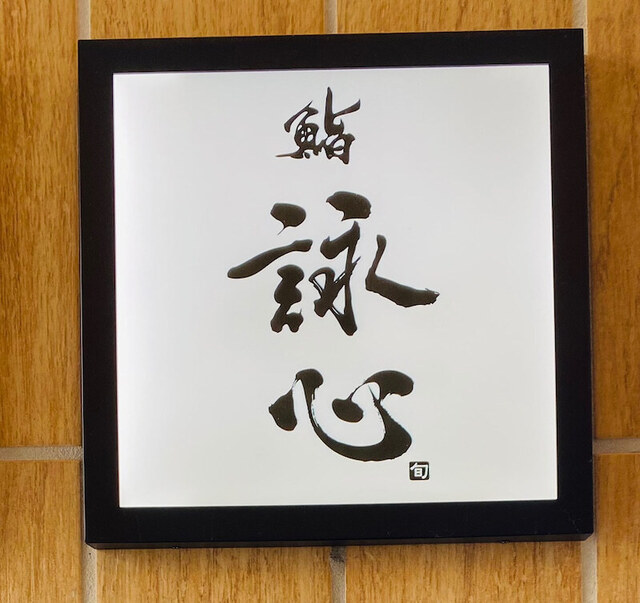 鮨
詠
心
旬